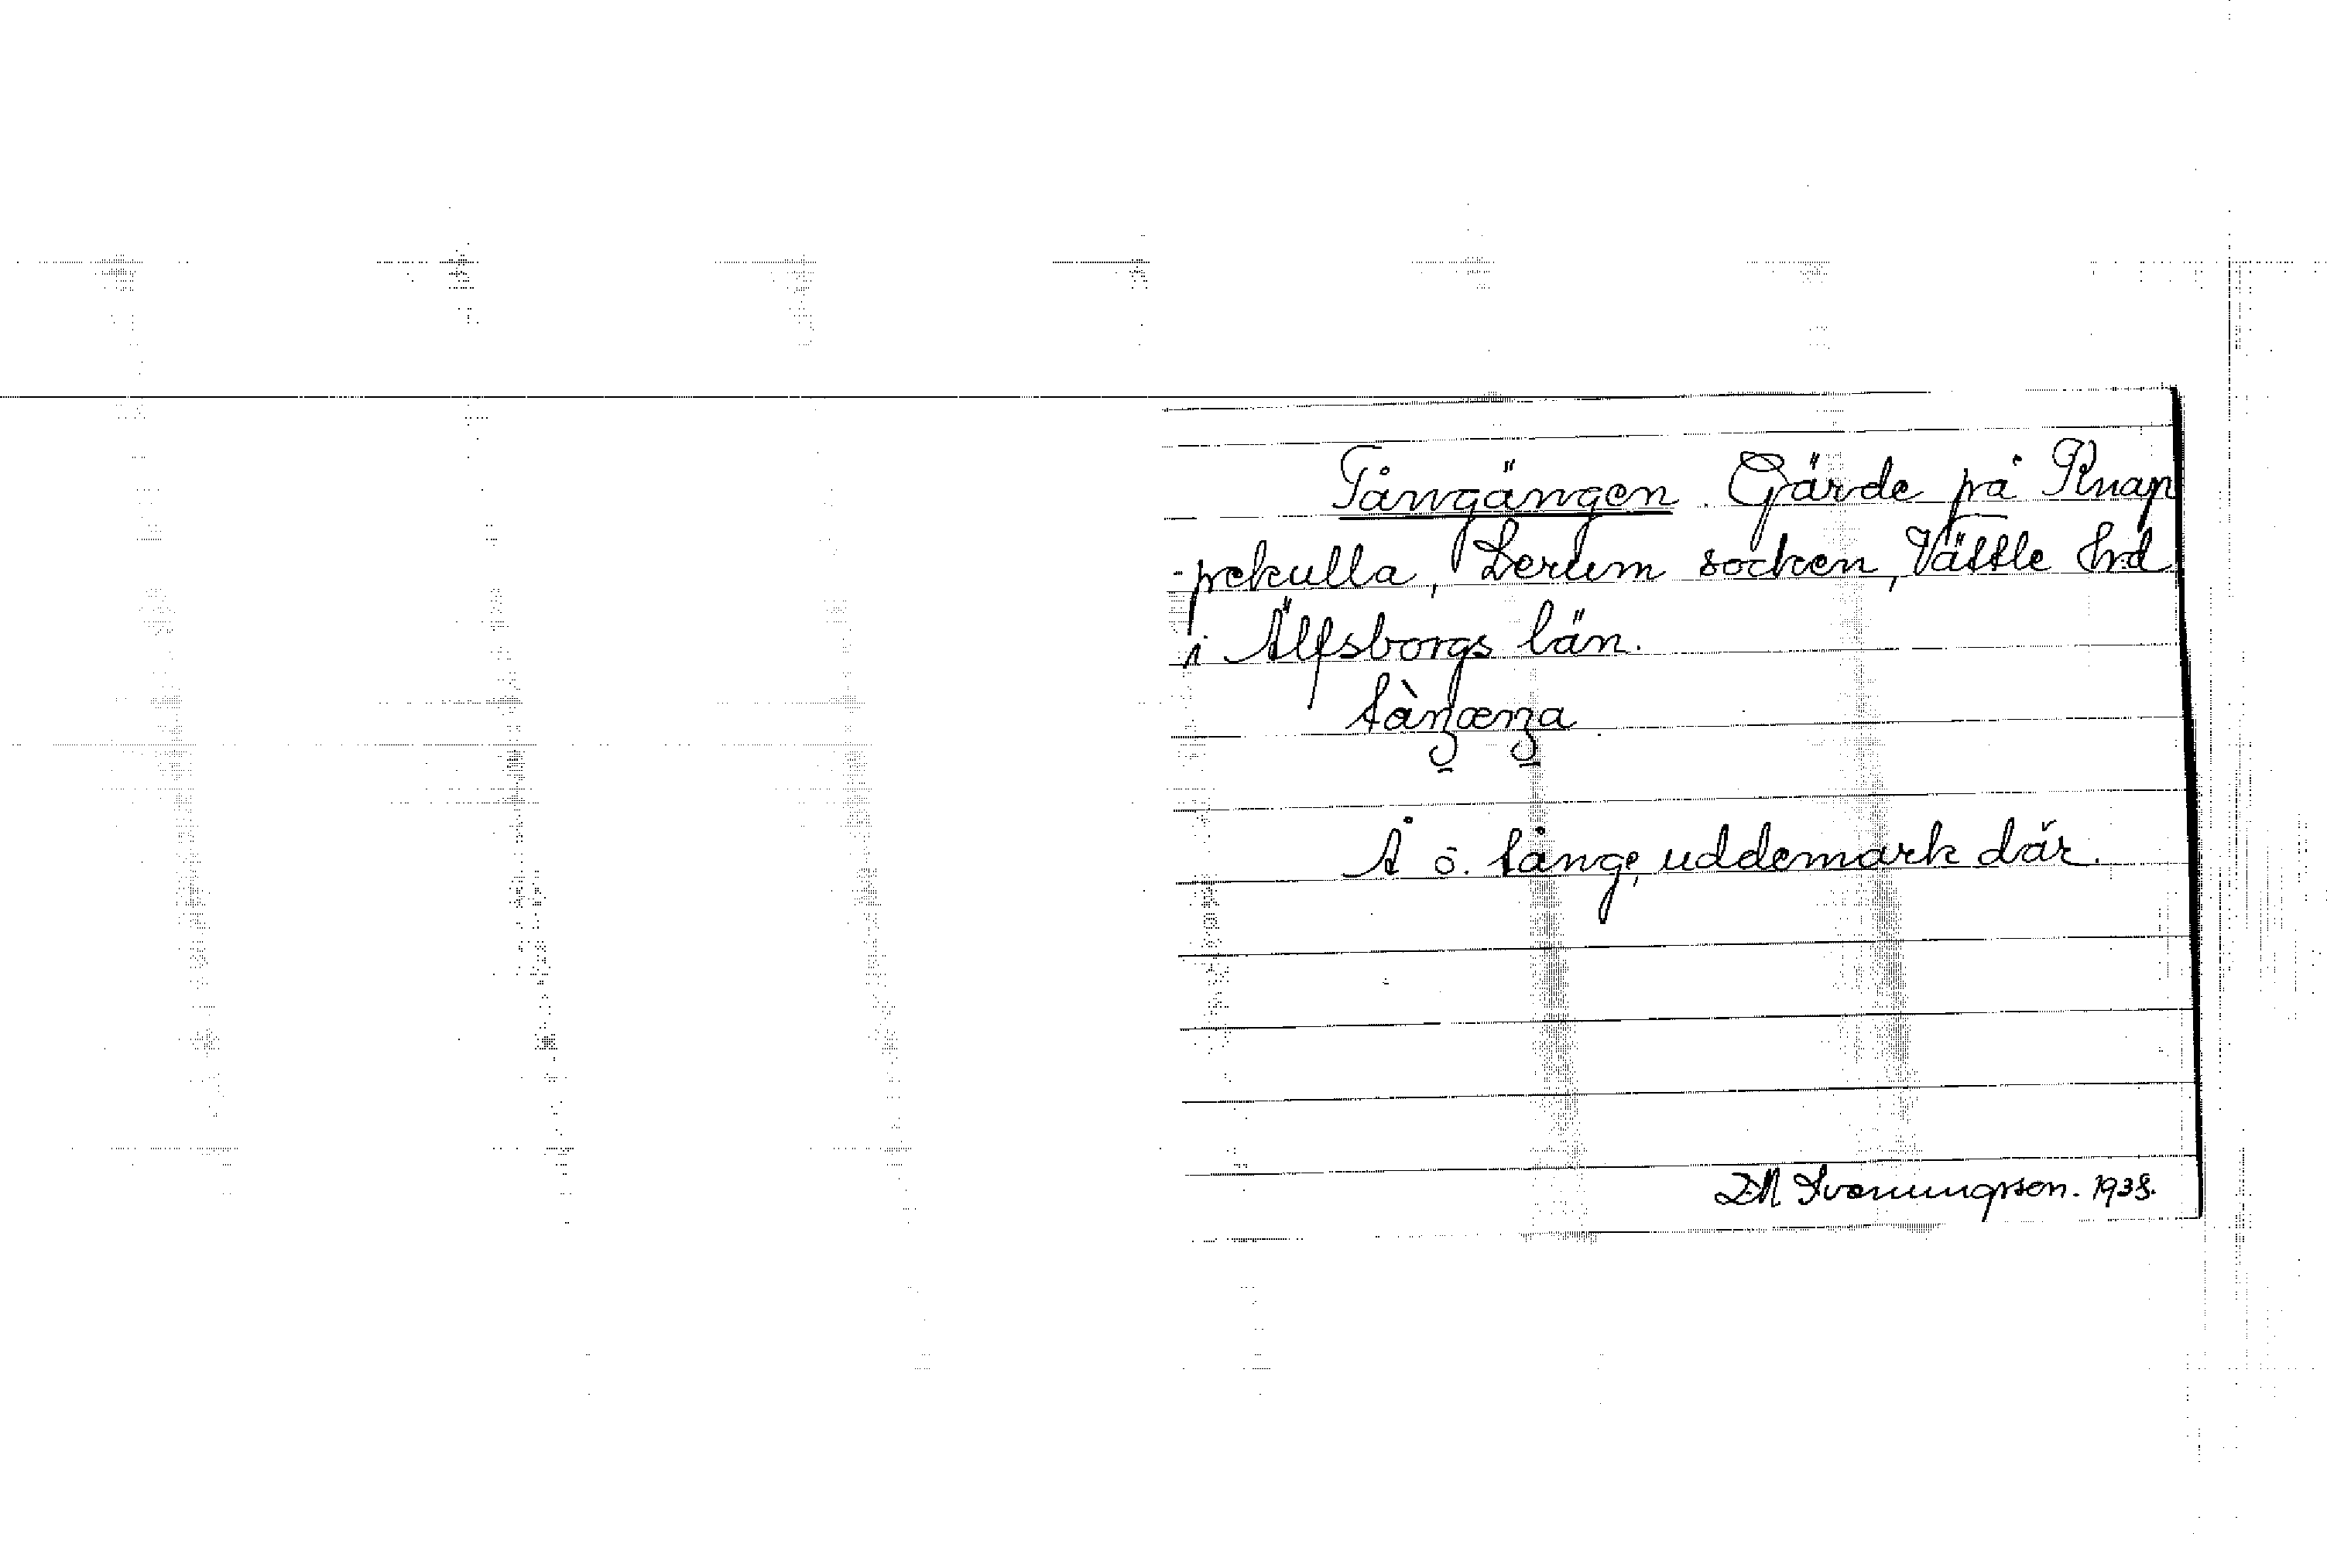 Tångängen. Gärde på Knap
-pekulla, Lerum socken, Vättle hrd
i Älfsborgs län.
Å ö. tånge, uddemark där.
D.N. Svenungsson. 1938.